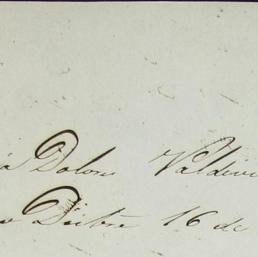 a Dolors Valdivi
Dicbre 16 de